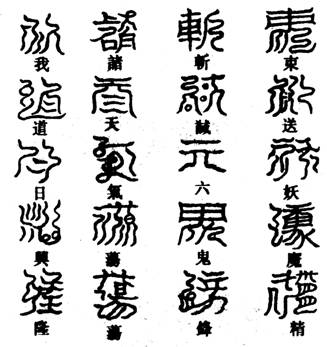 束送妖魔精
斬誠六鬼鋒
諸天氣蕩蕩
我道日興隆